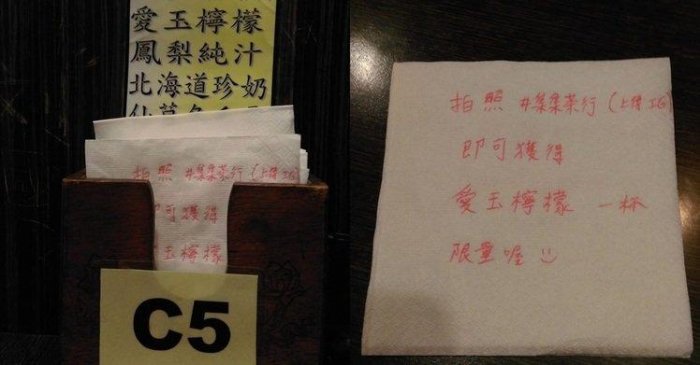 愛玉檸檬
鳳梨純汁
北海道珍奶
拍照 #集集茶行(上傳IG)
即可獲得
玉檸檬
C5
拍照 #集集茶行(上傳IG)
即可獲得
愛玉檸檬 一杯
限量喔